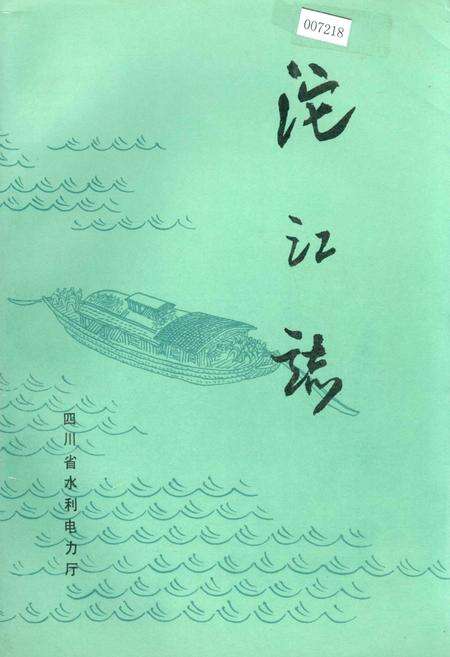 007218
沱江志
四川省水利电力厅